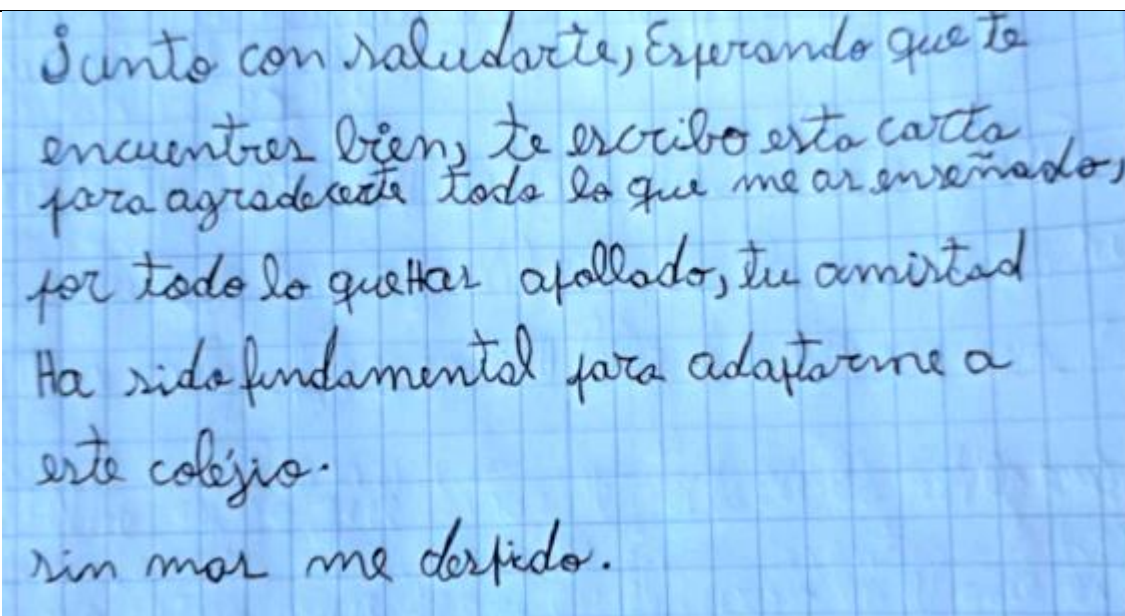 Junto con saludarte, Esperando que te
encuentres bien, te escribo esta carta
para agradecerte todo lo que me as enseñado,
por todo lo que Has apollado, tu amistad
Ha sido fundamental para adaptarme a
este colégio.
sin mas me despido.